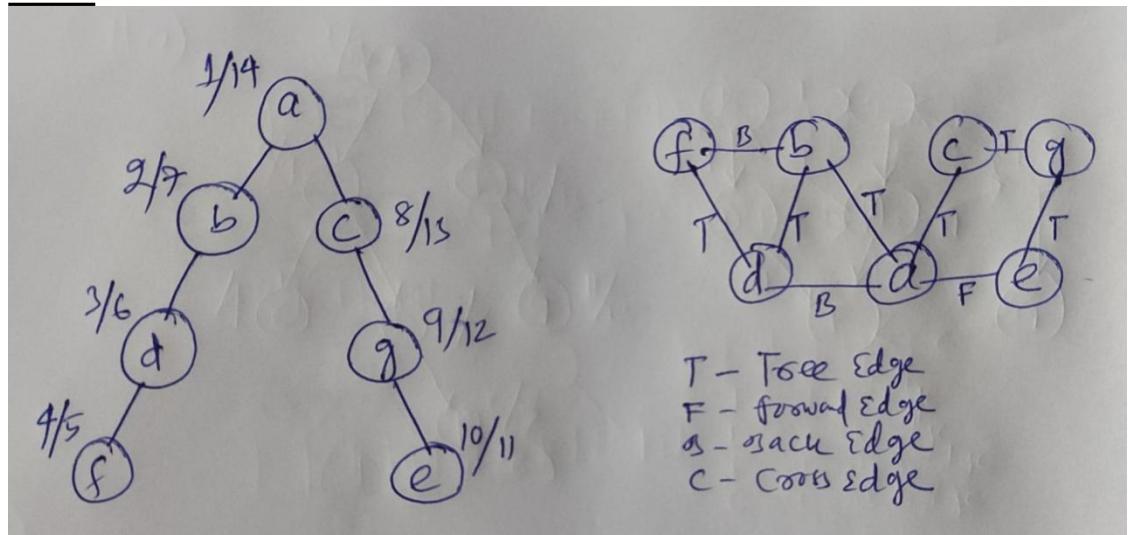 1/14
a
2/7
b
c
8/13
3/6
d
g
9/12
4/5
f
e
10/11
f B b c T g
T T T T T
d B a F e
T - Tree Edge
F - forwad Edge
B - Back Edge
C - Cross Edge